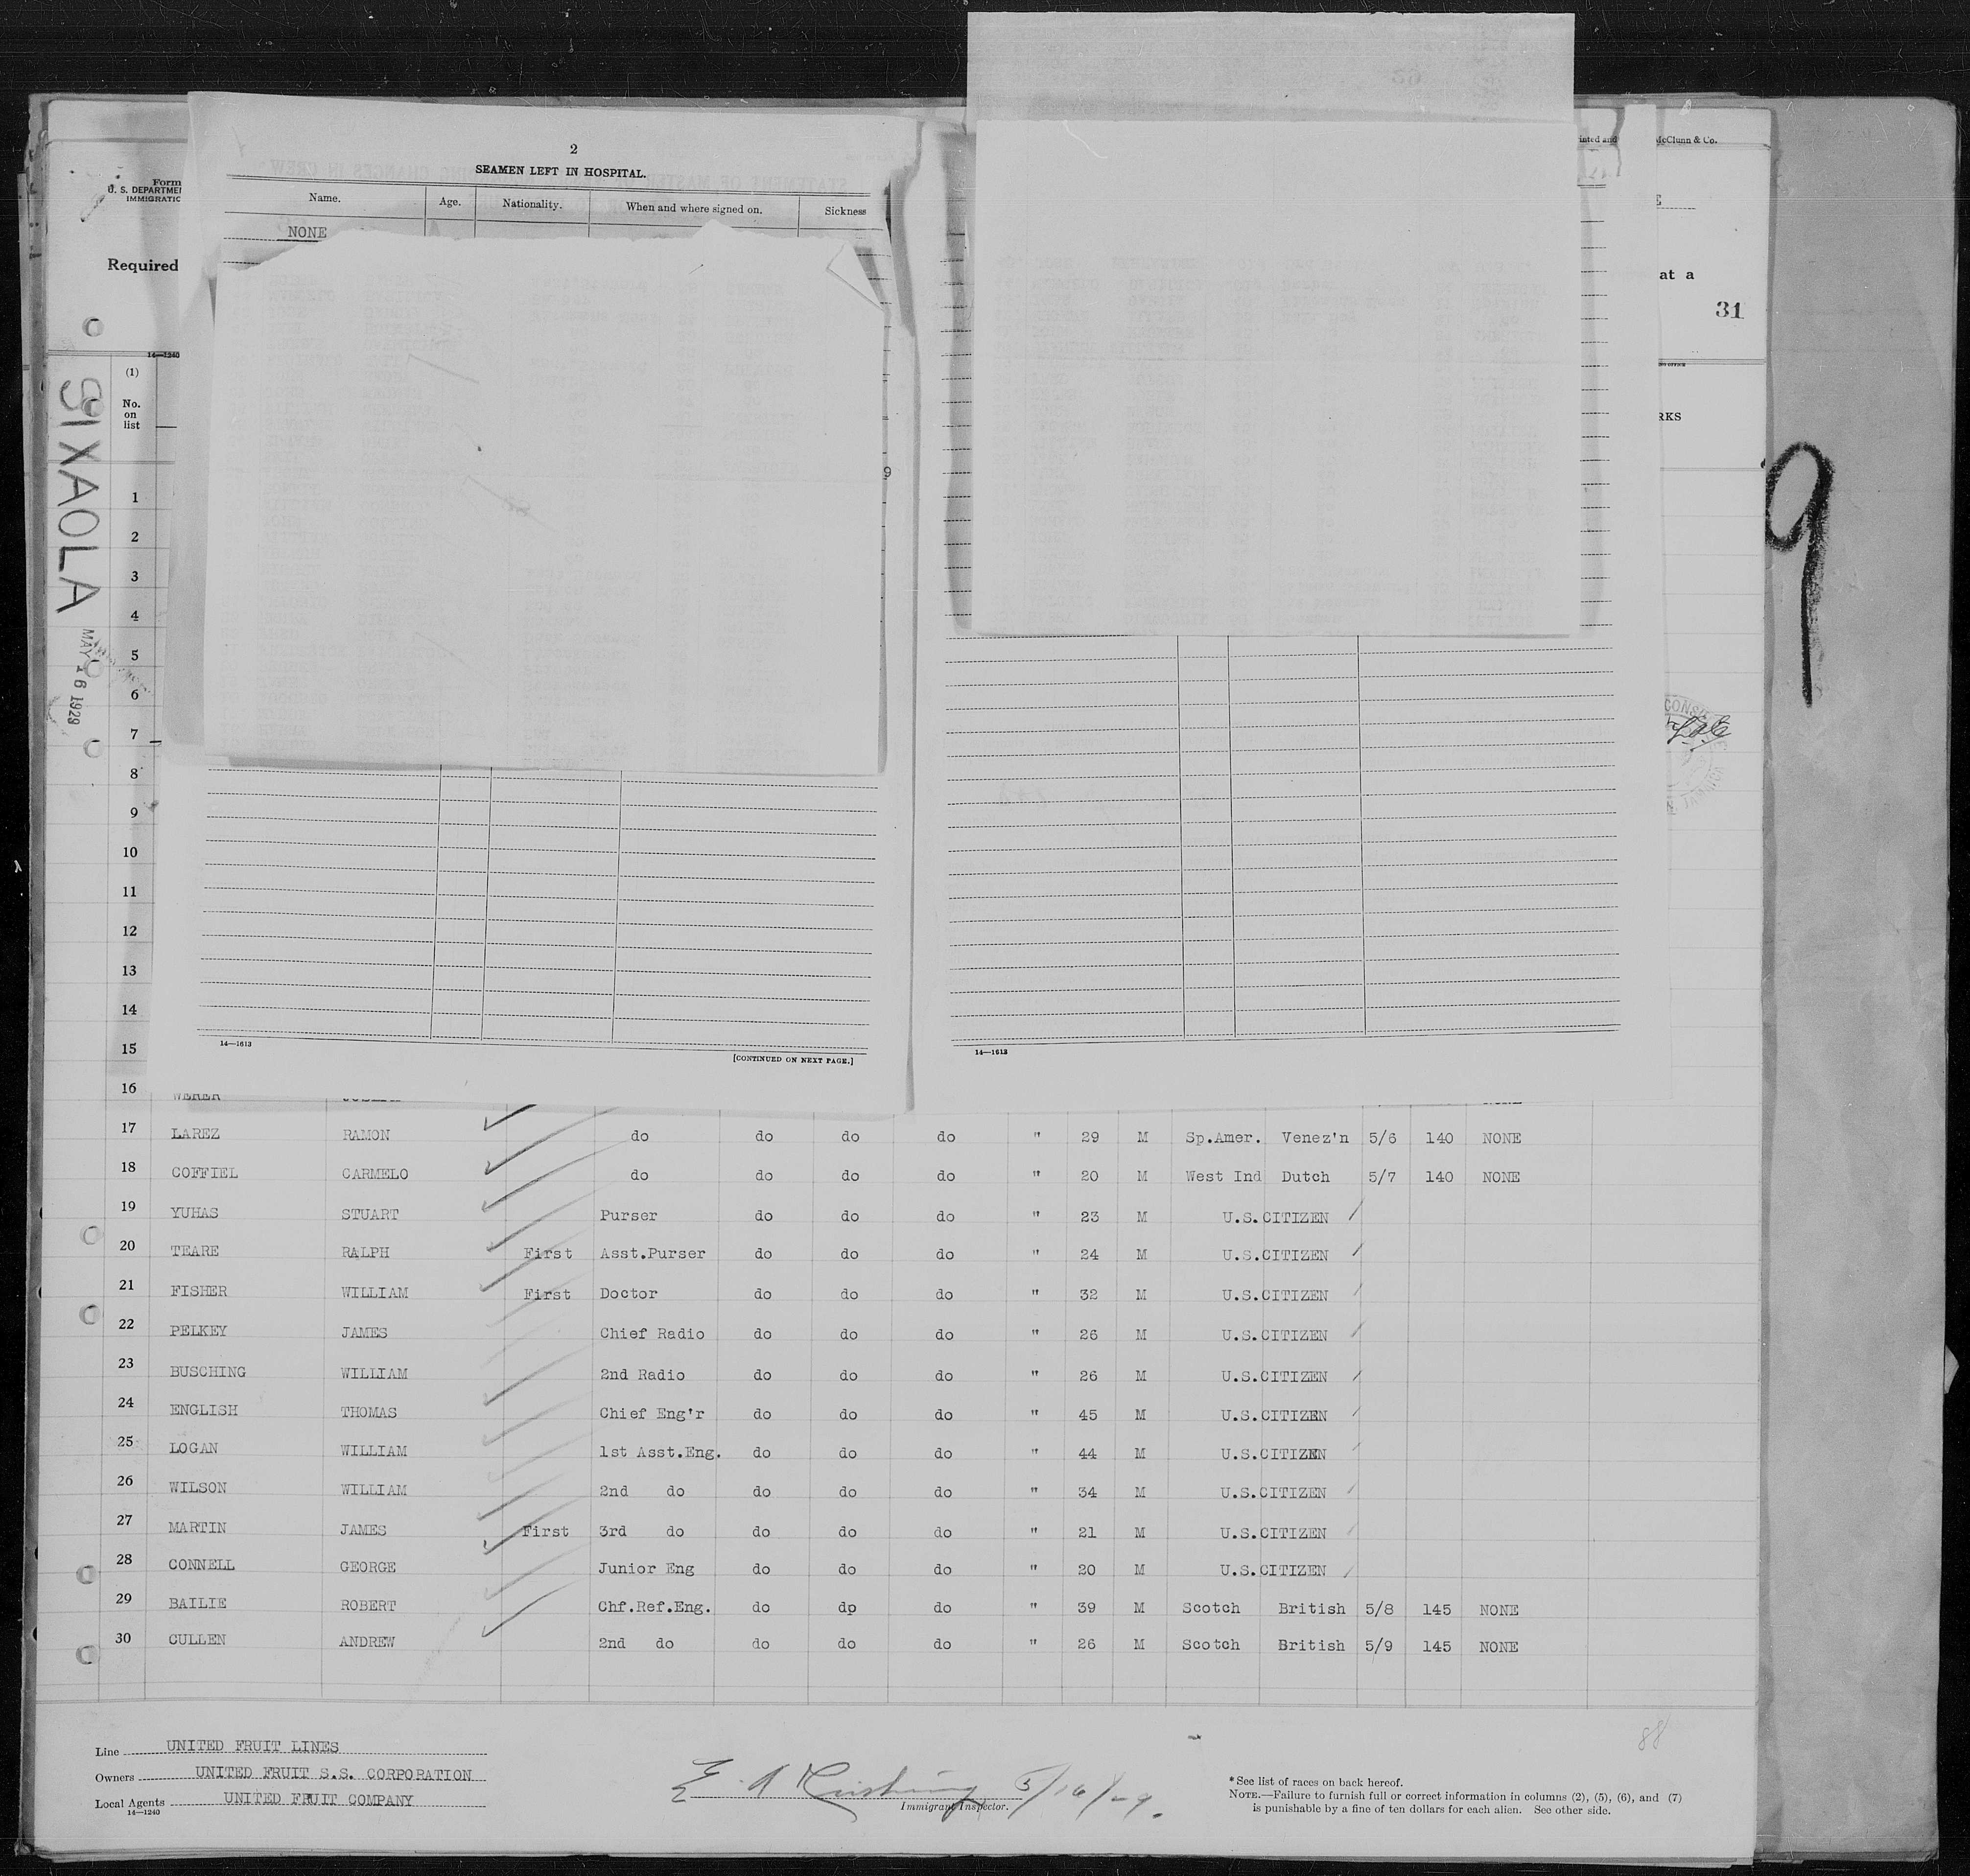 2
SEAMEN LEFT IN HOSPITAL.
Name. Age. Nationality. When and where signed on. Sickness
NONE
Form
U. S. DEPARTME
IMMIGRATIC
Required
inted and McClunn & Co.
at a
31
14—1240
(1)
No.
on
list
RKS
SIXAOLA
MAY 16 1929
9
9
1
2
3
4
5
6
7
8
9
10
11
12
13
14
15
14—1613
[CONTINUED ON NEXT PAGE.]
14—1613
16
17 LAREZ RAMON do do do do " 29 M Sp.Amer. Venez'n 5/6 140 NONE
18 COFFIEL CARMELO do do do do " 20 M West Ind Dutch 5/7 140 NONE
19 YUHAS STUART Purser do do do " 23 M U.S.CITIZEN
20 TEARE RALPH First Asst.Purser do do do " 24 M U.S.CITIZEN
21 FISHER WILLIAM First Doctor do do do " 32 M U.S.CITIZEN
22 PELKEY JAMES Chief Radio do do do " 26 M U.S.CITIZEN
23 BUSCHING WILLIAM 2nd Radio do do do " 26 M U.S.CITIZEN
24 ENGLISH THOMAS Chief Eng'r do do do " 45 M U.S.CITIZEN
25 LOGAN WILLIAM 1st Asst.Eng. do do do " 44 M U.S.CITIZEN
26 WILSON WILLIAM 2nd do do do do " 34 M U.S.CITIZEN
27 MARTIN JAMES First 3rd do do do do " 21 M U.S.CITIZEN
28 CONNELL GEORGE Junior Eng do do do " 20 M U.S.CITIZEN
29 BAILIE ROBERT Chf.Ref.Eng. do dp do " 39 M Scotch British 5/8 145 NONE
30 CULLEN ANDREW 2nd do do do do " 26 M Scotch British 5/9 145 NONE
88
Line UNITED FRUIT LINES
Owners UNITED FRUIT S.S. CORPORATION
Local Agents UNITED FRUIT COMPANY
14—1240
E. A Cushing 5/16/29.
Immigrant Inspector.
*See list of races on back hereof.
NOTE.—Failure to furnish full or correct information in columns (2), (5), (6), and (7)
is punishable by a fine of ten dollars for each alien. See other side.